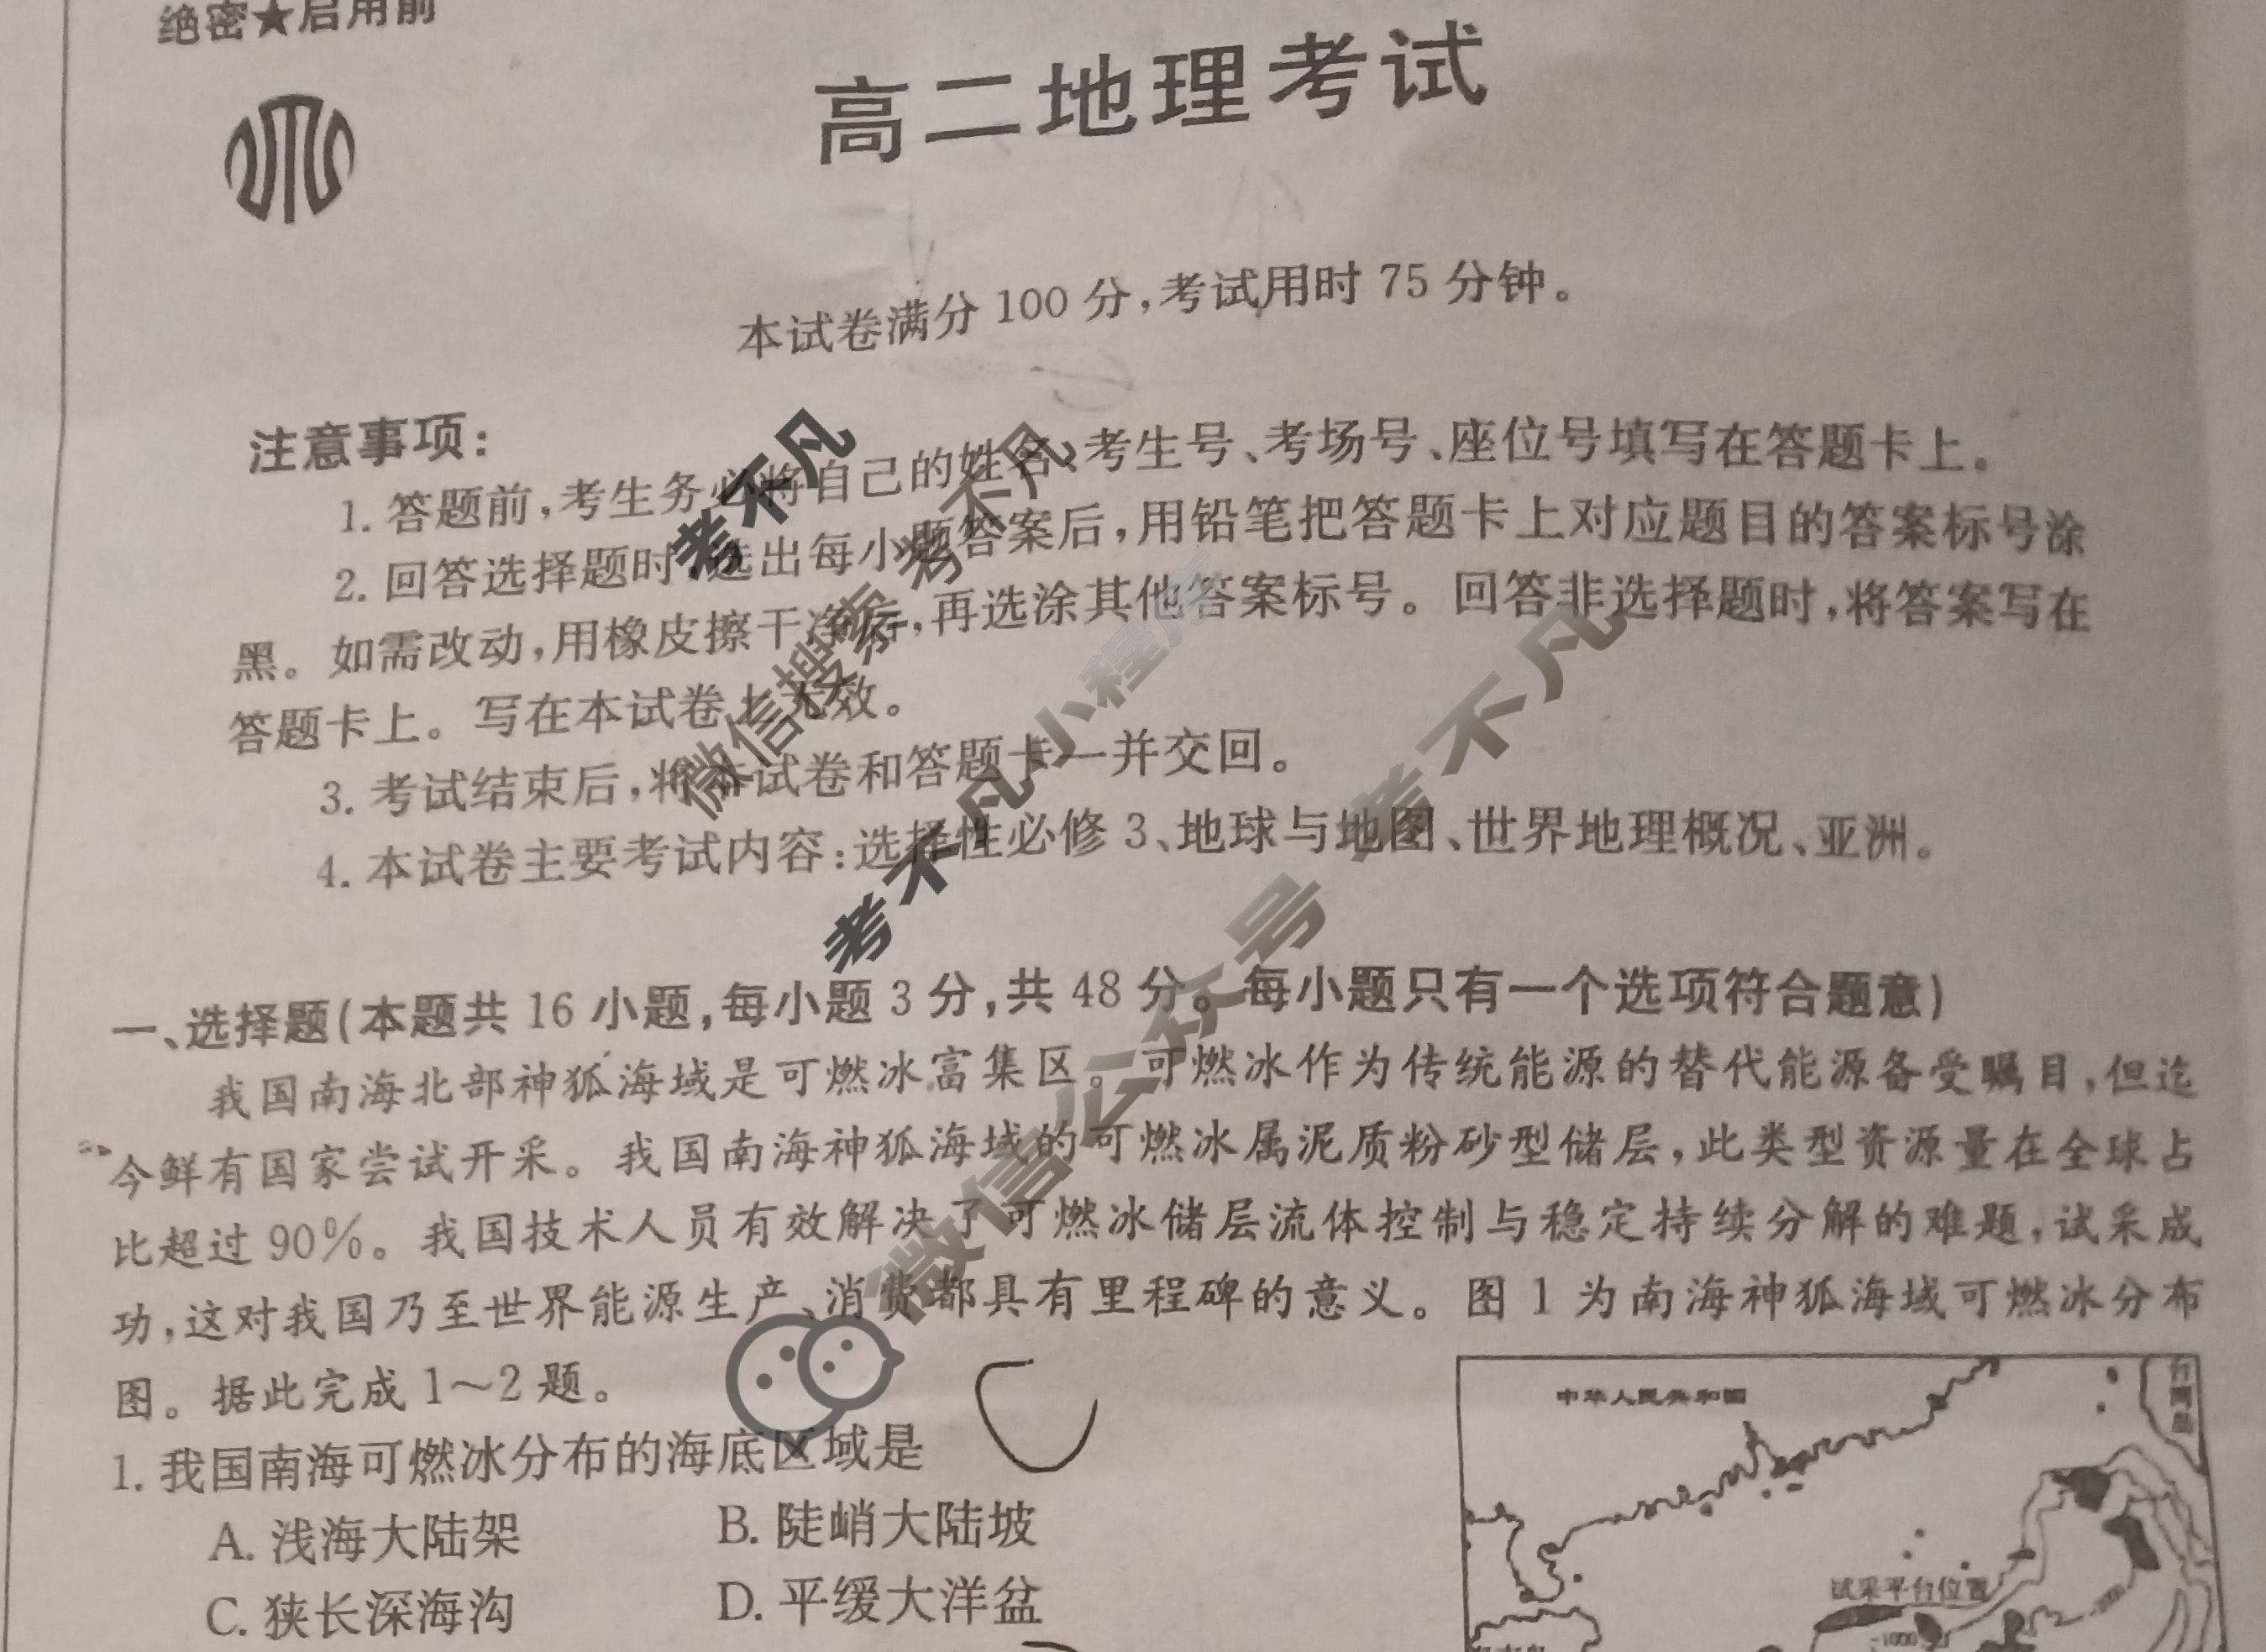 绝密★启用前
高二地理考试
本试卷满分100分,考试用时75分钟。
注意事项:
1. 答题前,考生务必将自己的姓名、考生号、考场号、座位号填写在答题卡上。
2. 回答选择题时,选出每小题答案后,用铅笔把答题卡上对应题目的答案标号涂
黑。如需改动,用橡皮擦干净后,再选涂其他答案标号。回答非选择题时,将答案写在
答题卡上。写在本试卷上无效。
3. 考试结束后,将本试卷和答题卡一并交回。
4. 本试卷主要考试内容:选择性必修3、地球与地图、世界地理概况、亚洲。
一、选择题(本题共16小题,每小题3分,共48分。每小题只有一个选项符合题意)
我国南海北部神狐海域是可燃冰富集区。可燃冰作为传统能源的替代能源备受瞩目,但迄
今鲜有国家尝试开采。我国南海神狐海域的可燃冰属泥质粉砂型储层,此类型资源量在全球占
比超过90%。我国技术人员有效解决了可燃冰储层流体控制与稳定持续分解的难题,试采成
功,这对我国乃至世界能源生产、消费都具有里程碑的意义。图1为南海神狐海域可燃冰分布
图。据此完成1~2题。
1. 我国南海可燃冰分布的海底区域是
A. 浅海大陆架
B. 陡峭大陆坡
C. 狭长深海沟
D. 平缓大洋盆
中华人民共和国
台湾岛
试采平台位置
1000
考不凡
微信搜索 考不凡
考不凡小程序
微信公众号 考不凡